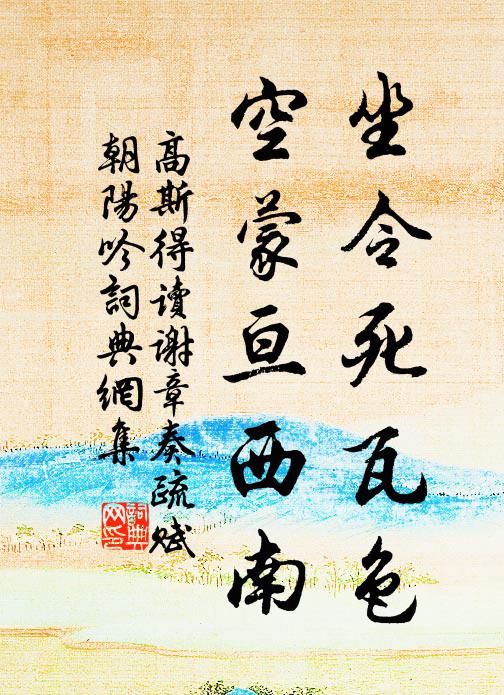 坐令死瓦色
空蒙亘西南
高斯得讀謝章奏疏賦
朝陽吟詞典網集